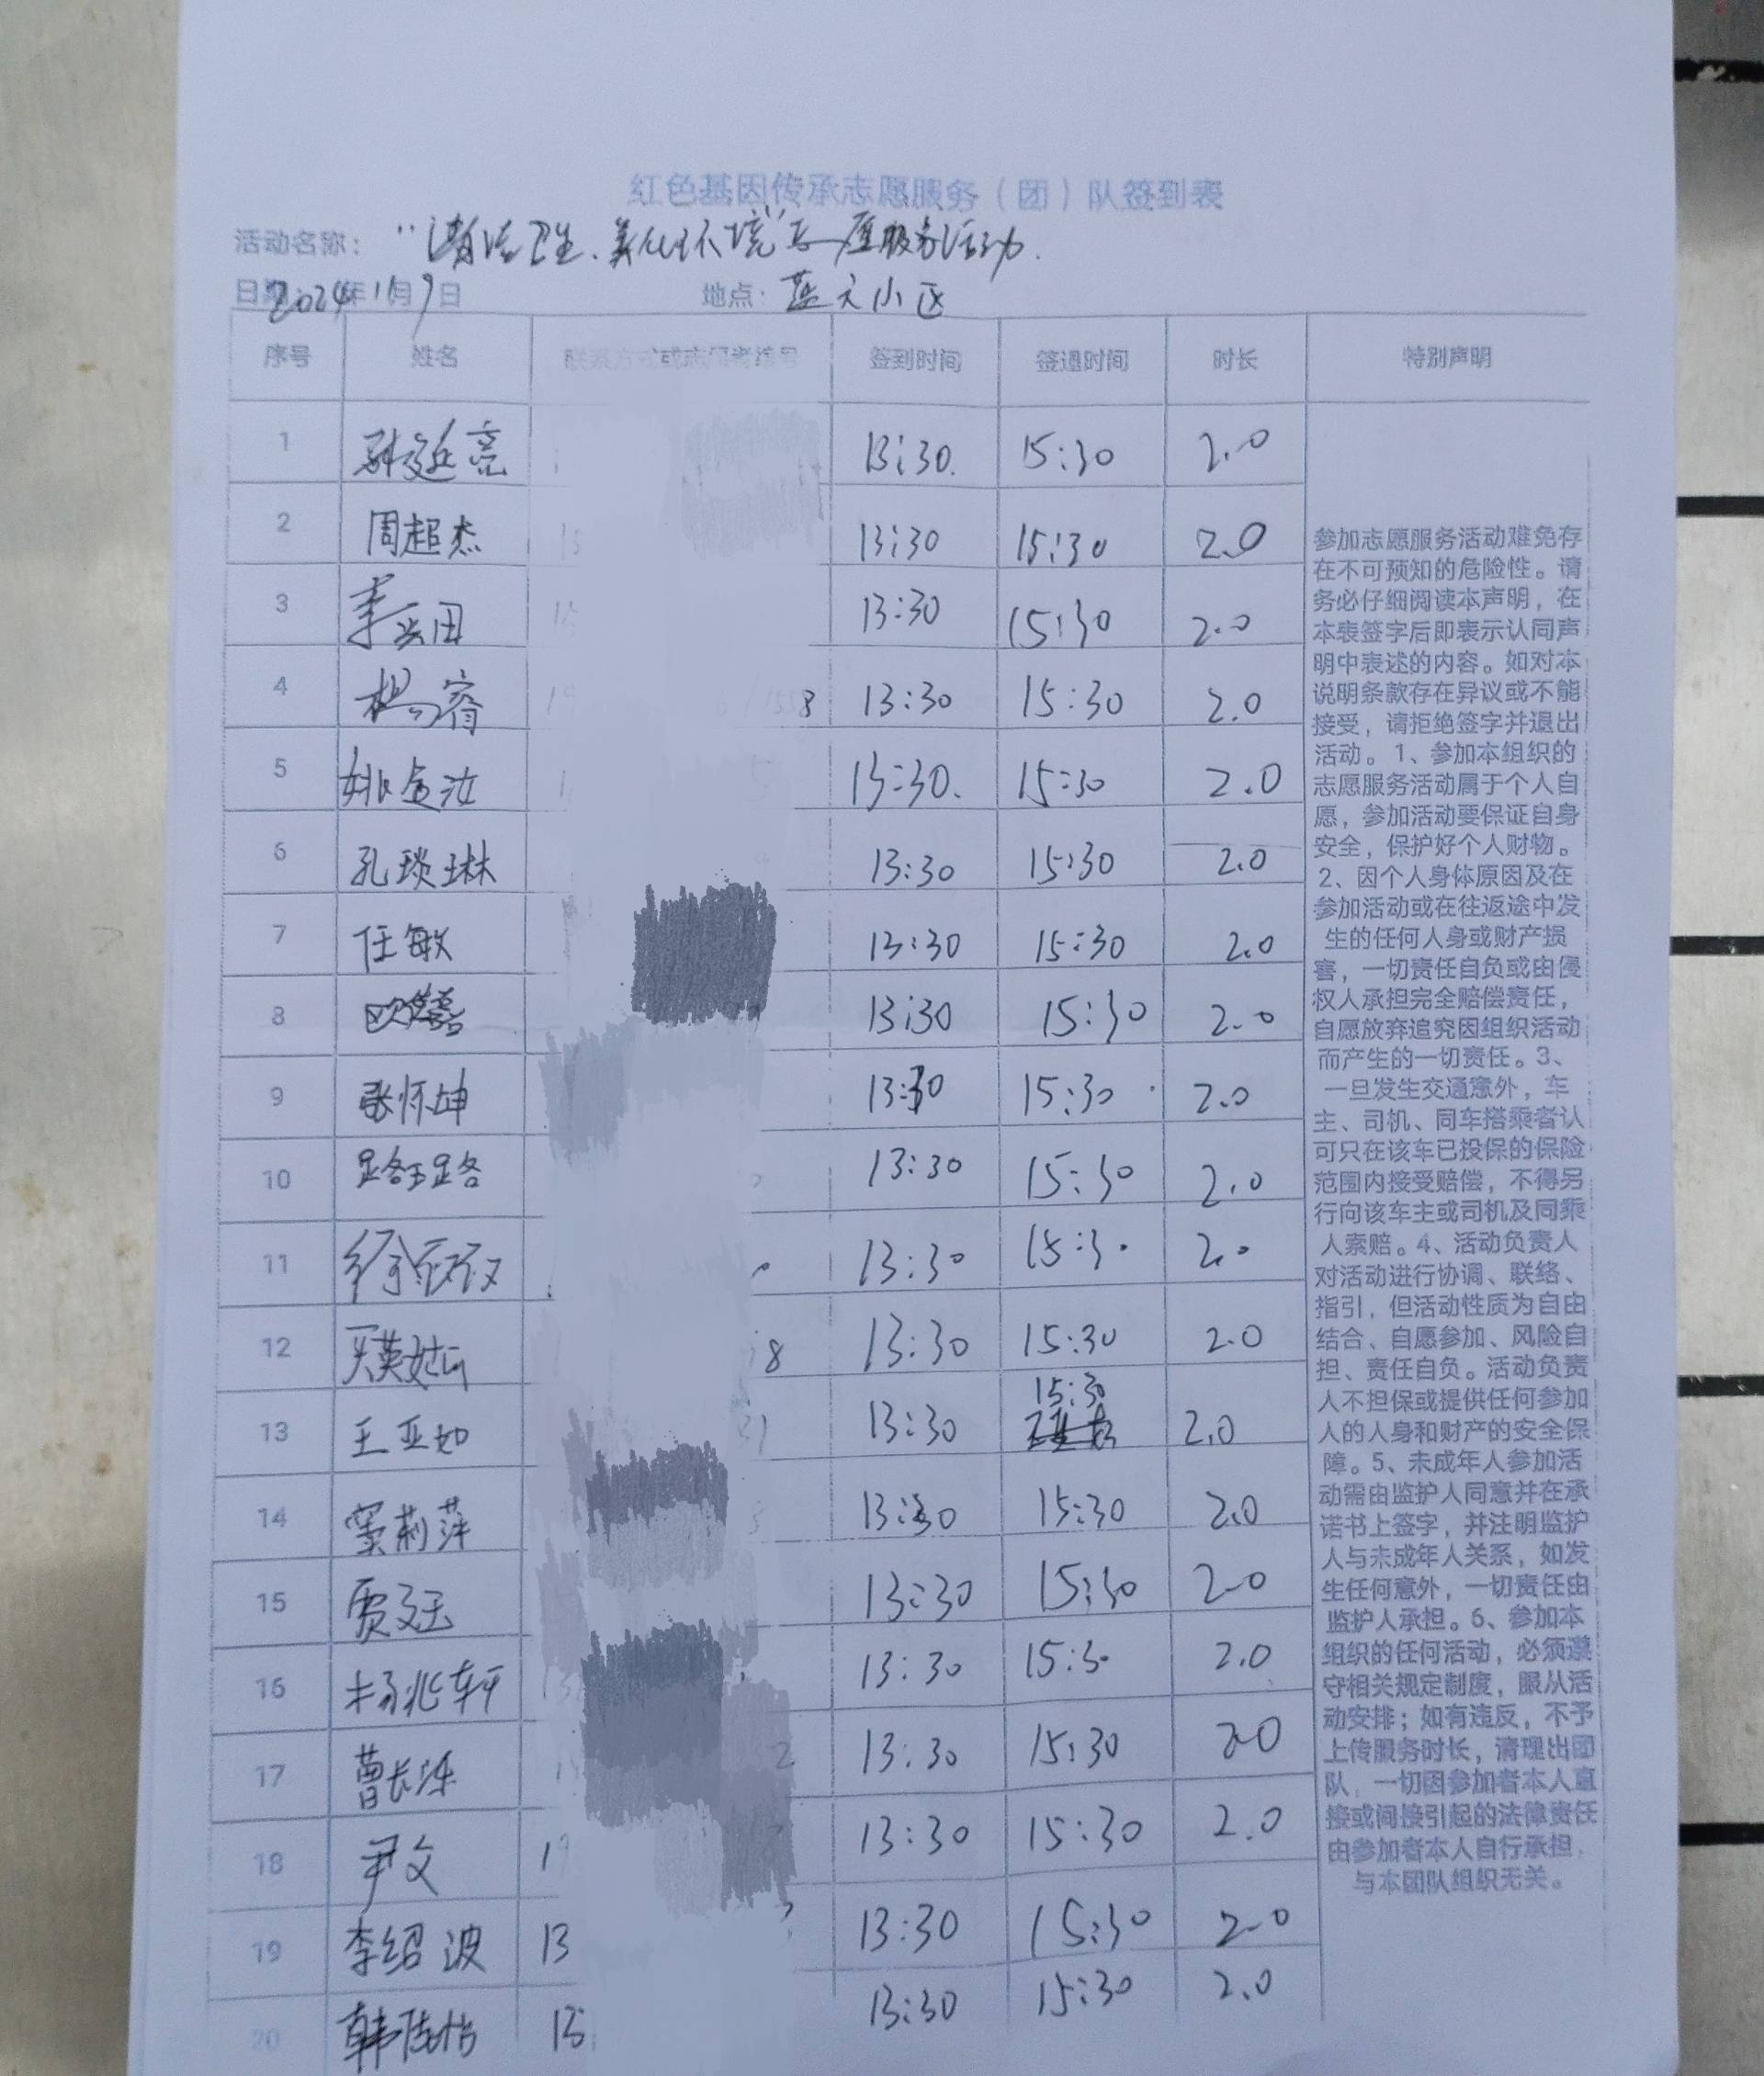 红色基因传承志愿服务（团）队签到表
活动名称：“清洁卫生、美化环境”志愿服务活动.
日期 2024年11月9日 地点：蓝天小区
序号 姓名 联系方式或志愿者编号 签到时间 签退时间 时长 特别声明
1 延亮 13:30. 15:30 2.0
2 周超杰 15 13:30 15:30 2.0
3 李 田 13:30 15:30 2.0
4 杨睿 8 13:30 15:30 2.0
5 姚 汝 13:30. 15:30 2.0
6 孔琰琳 13:30 15:30 2.0
7 任敏 13:30 15:30 2.0
8 欧 13:30 15:30 2.0
9 张怀坤 13:30 15:30 2.0
10 路 路 13:30 15:30 2.0
11 徐 13:30 15:30 2.0
12 英 8 13:30 15:30 2.0
13 王亚如 13:30 15:30 2.0
14 窦莉萍 13:30 15:30 2.0
15 贾 玉 13:30 15:30 2.0
16 杨兆轩 13:30 15:30 2.0
17 曹长泺 2 13:30 15:30 2.0
18 尹文 1 13:30 15:30 2.0
19 李绍波 13 13:30 15:30 2.0
20 韩 怡 15 13:30 15:30 2.0
参加志愿服务活动难免存
在不可预知的危险性。请
务必仔细阅读本声明，在
本表签字后即表示认同声
明中表述的内容。如对本
说明条款存在异议或不能
接受，请拒绝签字并退出
活动。1、参加本组织的
志愿服务活动属于个人自
愿，参加活动要保证自身
安全，保护好个人财物。
2、因个人身体原因及在
参加活动或在往返途中发
生的任何人身或财产损
害，一切责任自负或由侵
权人承担完全赔偿责任，
自愿放弃追究因组织活动
而产生的一切责任。3、
一旦发生交通意外，车
主、司机、同车搭乘者认
可只在该车已投保的保险
范围内接受赔偿，不得另
行向该车主或司机及同乘
人索赔。4、活动负责人
对活动进行协调、联络、
指引，但活动性质为自由
结合、自愿参加、风险自
担、责任自负。活动负责
人不担保或提供任何参加
人的人身和财产的安全保
障。5、未成年人参加活
动需由监护人同意并在承
诺书上签字，并注明监护
人与未成年人关系，如发
生任何意外，一切责任由
监护人承担。6、参加本
组织的任何活动，必须遵
守相关规定制度，服从活
动安排；如有违反，不予
上传服务时长，请理出团
队，一切因参加者本人直
接或间接引起的法律责任
由参加者本人自行承担，
与本团队组织无关。